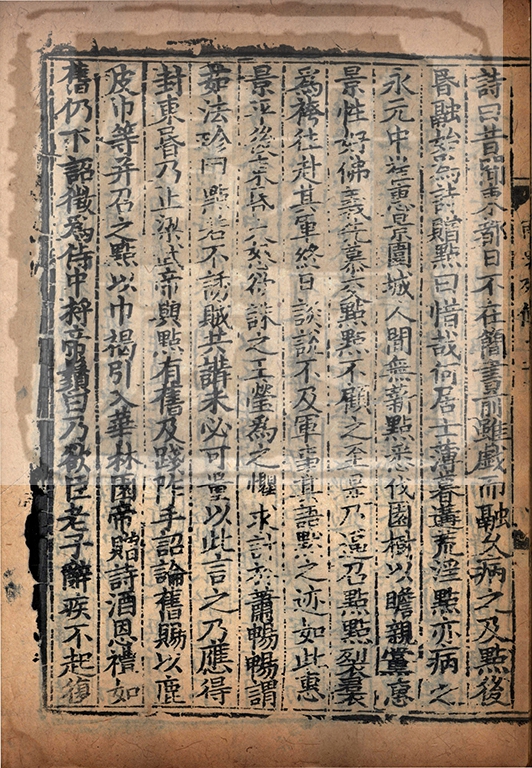 詩曰昔聞東都日不在簡書前雖戲而融久病之及點後
昬融始為詩贈點曰惜哉何居士薄暮遘荒淫點亦病之
永元中崔惠景圍城人間無薪點悉伐園樹以贍親黨惠
景性好佛義先慕交點點不顧之至是乃逼召點點裂裙
為袴往赴其軍終日談說不及軍事其語默之迹如此惠
景平後東昏大怒欲誅之王瑩為之懼求計於蕭暢暢謂
茹法珍曰點若不誘賊共講未必可量以此言之乃應得
封東昬乃止梁武帝與點有舊及踐阼手詔論舊賜以鹿
皮巾等并召之點以巾褐引入華林園帝贈詩酒恩禮如
舊仍下詔徵為侍中捋帝鬚曰乃欲臣老子辭疾不起復